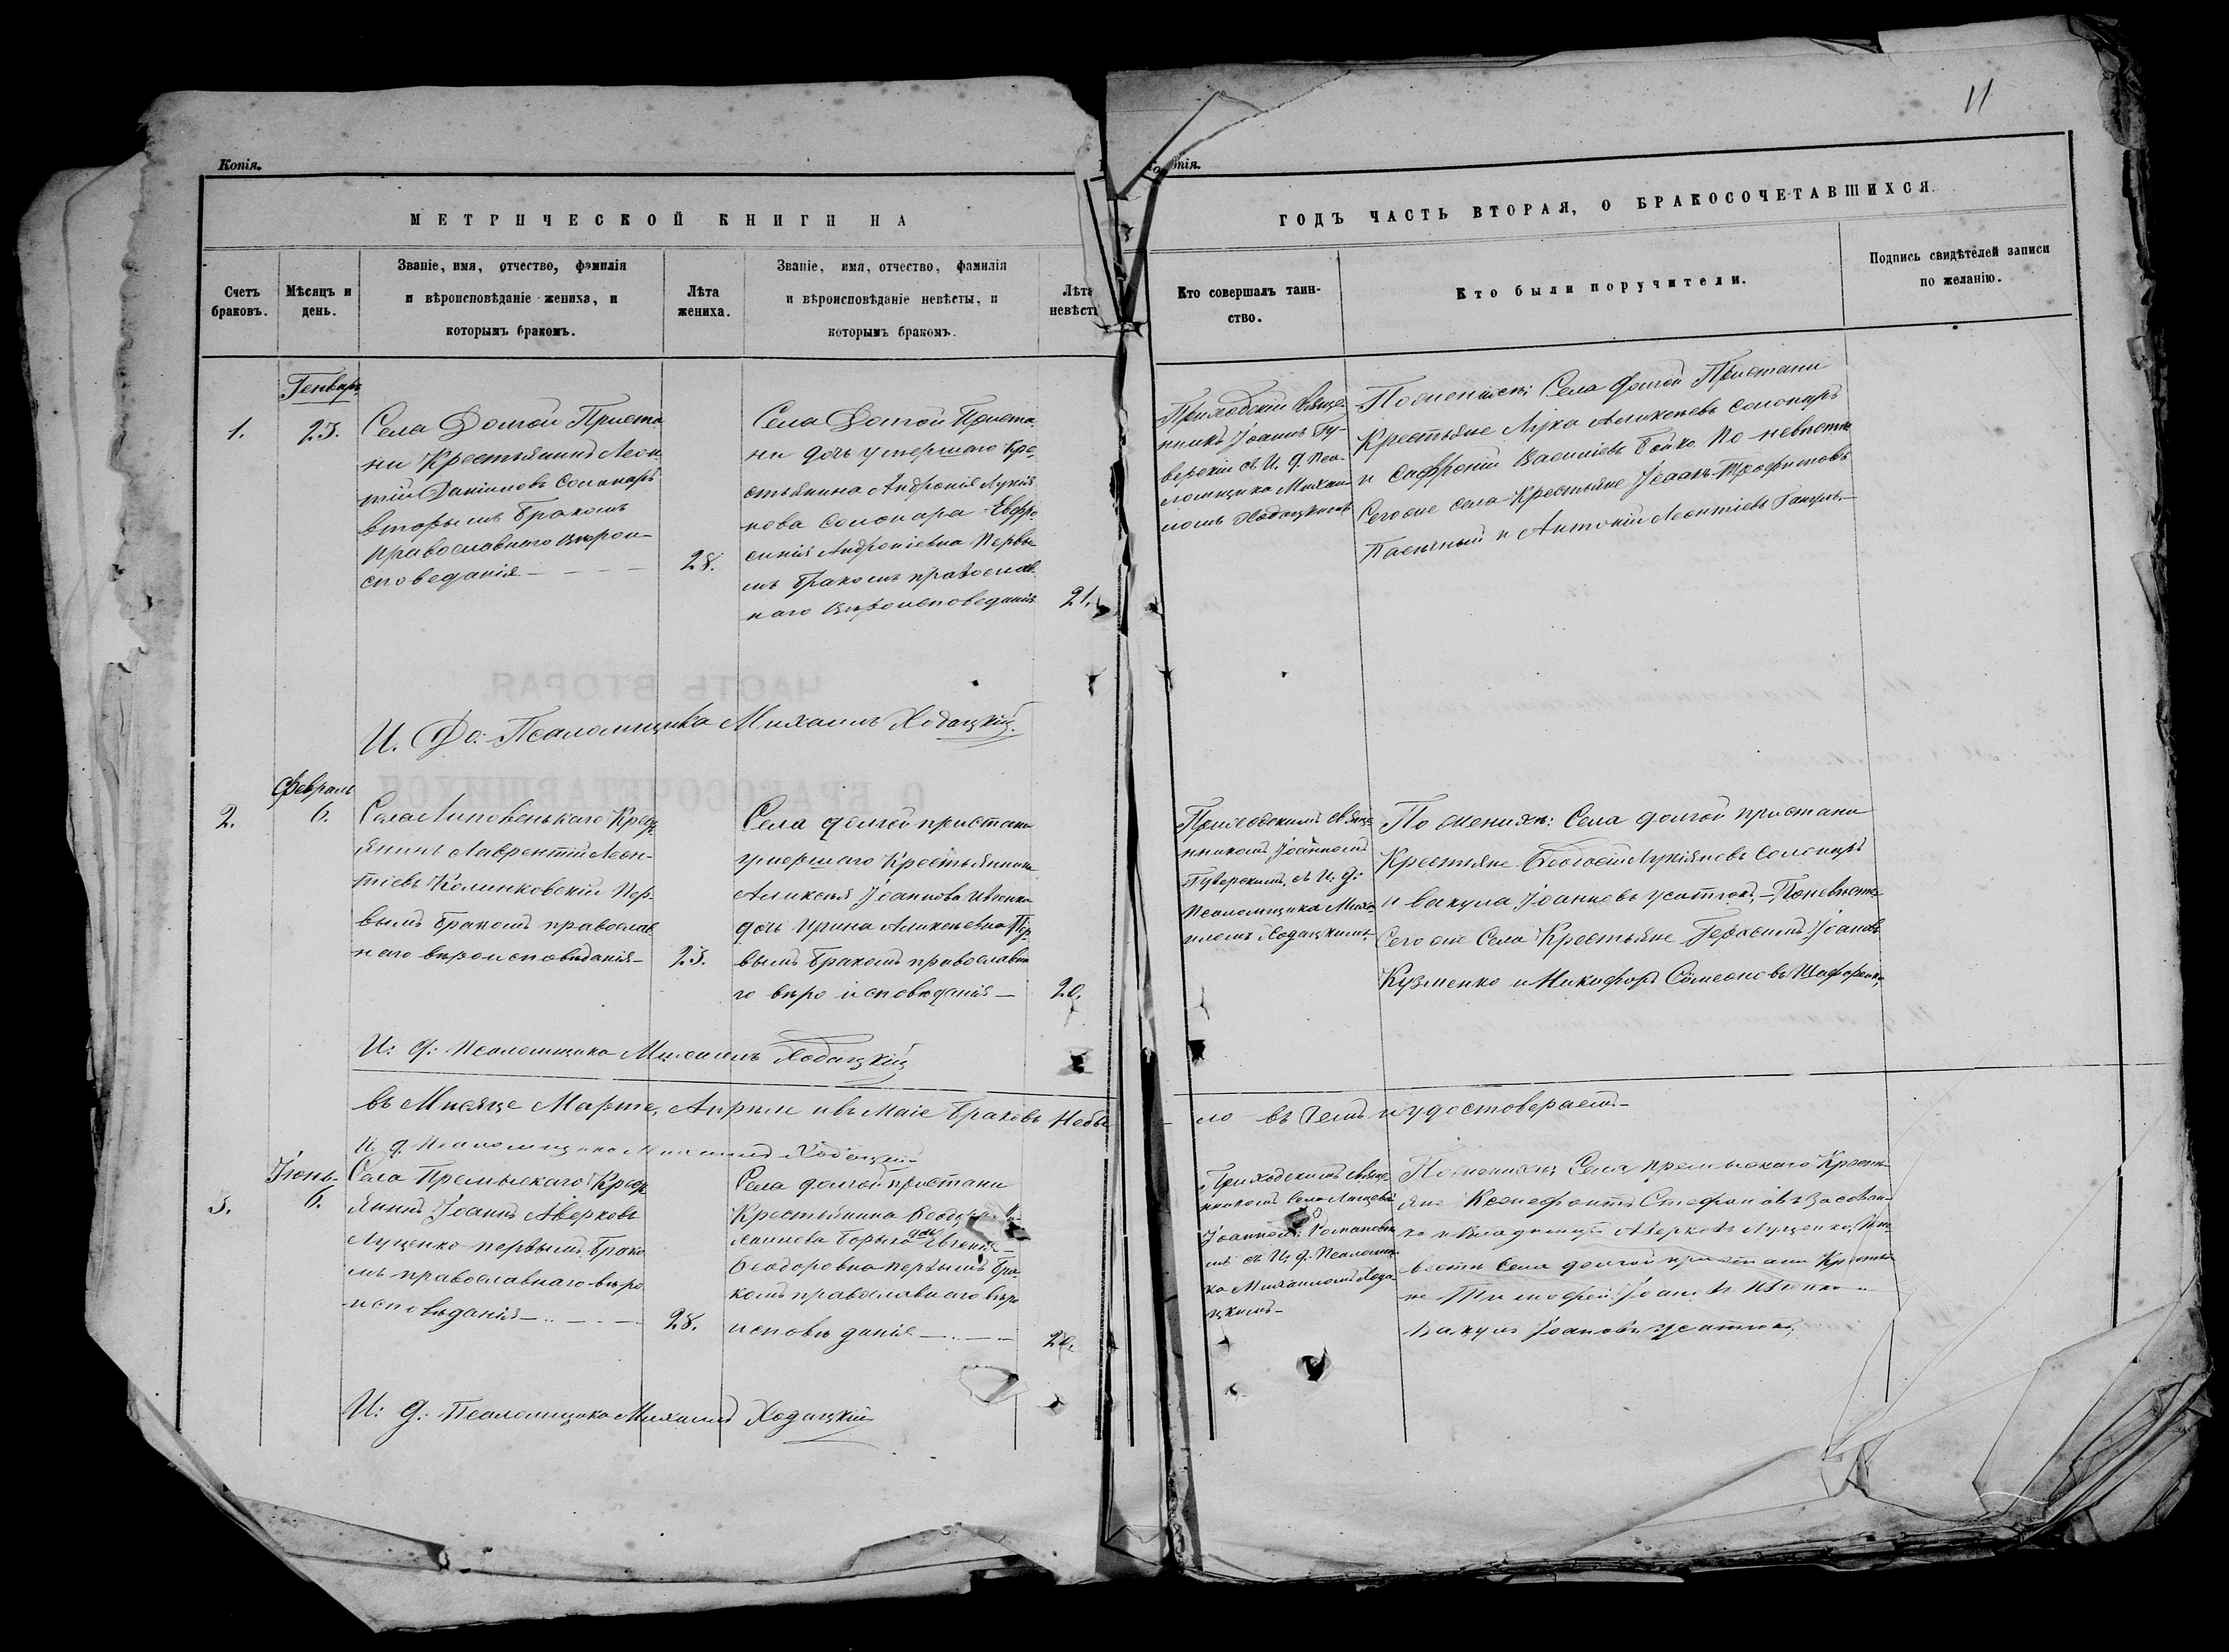 11
Копія.
Копія.
МЕТРИЧЕСКОЙ КНИГИ НА
ГОДЪ ЧАСТЬ ВТОРАЯ, О БРАКОСОЧЕТАВШИХСЯ.
Счетъ
браковъ.
Мѣсяцъ и
день.
Званіе, имя, отчество, фамилія
и вѣроисповѣданіе жениха, и
которымъ бракомъ.
Лѣта
жениха.
Званіе, имя, отчество, фамилія
и вѣроисповѣданіе невѣсты, и
которымъ бракомъ.
Лѣта
невѣсты
Кто совершалъ таин-
ство.
Кто были поручители.
Подпись свидѣтелей записи
по желанію.
Генварь
1.
23.
Села Долгой Приста
ни Крестьянинъ Леон
тій Даніиловъ Солонарь
вторымъ бракомъ
православнаго вѣрои-
споведанія
28.
Села Долгой Приста
ни дочь умершаго Кре-
стьянина Андронія Лукія
нова Солонара Евфро
синія Андроніевна Первы
мъ бракомъ православ
наго Вѣроисповеданія
21.
Приходскій Свяще-
нникъ Іоаннъ Гу-
верскій съ И. д. Пса-
ломщика Михаи
ломъ Ходацкимъ
По женихѣ: Села Долгой Пристани
Крестьяне Лука Аликсѣевъ Солонарь
и Сафроній Василіевъ Бойко По невѣстѣ
Сегоже села Крестьяне Исаакъ Трофимовъ
Пасѣчный и Антоній Леонтіевъ
И. До: Псаломщика Михаилъ Ходацкій.
Февраль
2.
6.
Села Липовенькаго Крест
янинъ Лаврентій Леон-
тіевъ Колинковскій Пер-
вымъ бракомъ православ
наго вѣроисповѣданія
23.
Села долгой пристани
умершаго Крестьянина
Аликсѣя Іоаннова Ивченка
дочь Ирина Аликсѣевна Пер
вымъ бракомъ православна
го вѣроисповѣданія
20.
Приходскимъ Свяще
нникомъ Іоанномъ
Гуверскимъ, съ И: д:
Псаломщика Миха
иломъ Ходацкимъ
По женихѣ: Села долгой пристани
Крестьяне Ѳеодосій Лукіяновъ Солонарь
и Вакула Іоанновъ Усатюкъ, По невѣстѣ
Сегоже Села Крестьяне Герасимъ Іоановъ
Кузменко и Никифоръ Симеоновъ Шафоренко,
И: д: Псаломщика Михаилъ Ходацкій
въ Мисяце Марте, Апрѣли и въ Маіе браковъ небы
ло въ чемъ и удостовераетъ
И. д. Псаломщика Михаилъ Ходацкій
Іюнь
3.
6.
Села Премыскаго Крест
янинъ Іоаннъ Аверковъ
Луценко первымъ брако
мъ православнаго вѣро
исповѣданія
28.
Села долгой пристани
Крестьянина Ѳеодора
дочь Евгенія
Ѳеодоровна первымъ бра-
комъ православнаго вѣро
исповѣданія
20.
Приходскимъ Свяще-
нникомъ Села
Іоанномъ Романовск
мъ съ И. д. Псаломщи
ка Михаиломъ Хода-
цкимъ
По женихѣ Села Премыскаго Кресть-
яне Ксенофонтъ Стефановъ
ко и Владимиръ Аверковъ Луценко, По не-
вѣстѣ Села долгой пристани Крестья
не Тимофей Іоановъ Ивченко и
Вакула Іоановъ Усатюкъ,
И: д: Псаломщика Михаилъ Ходацкій